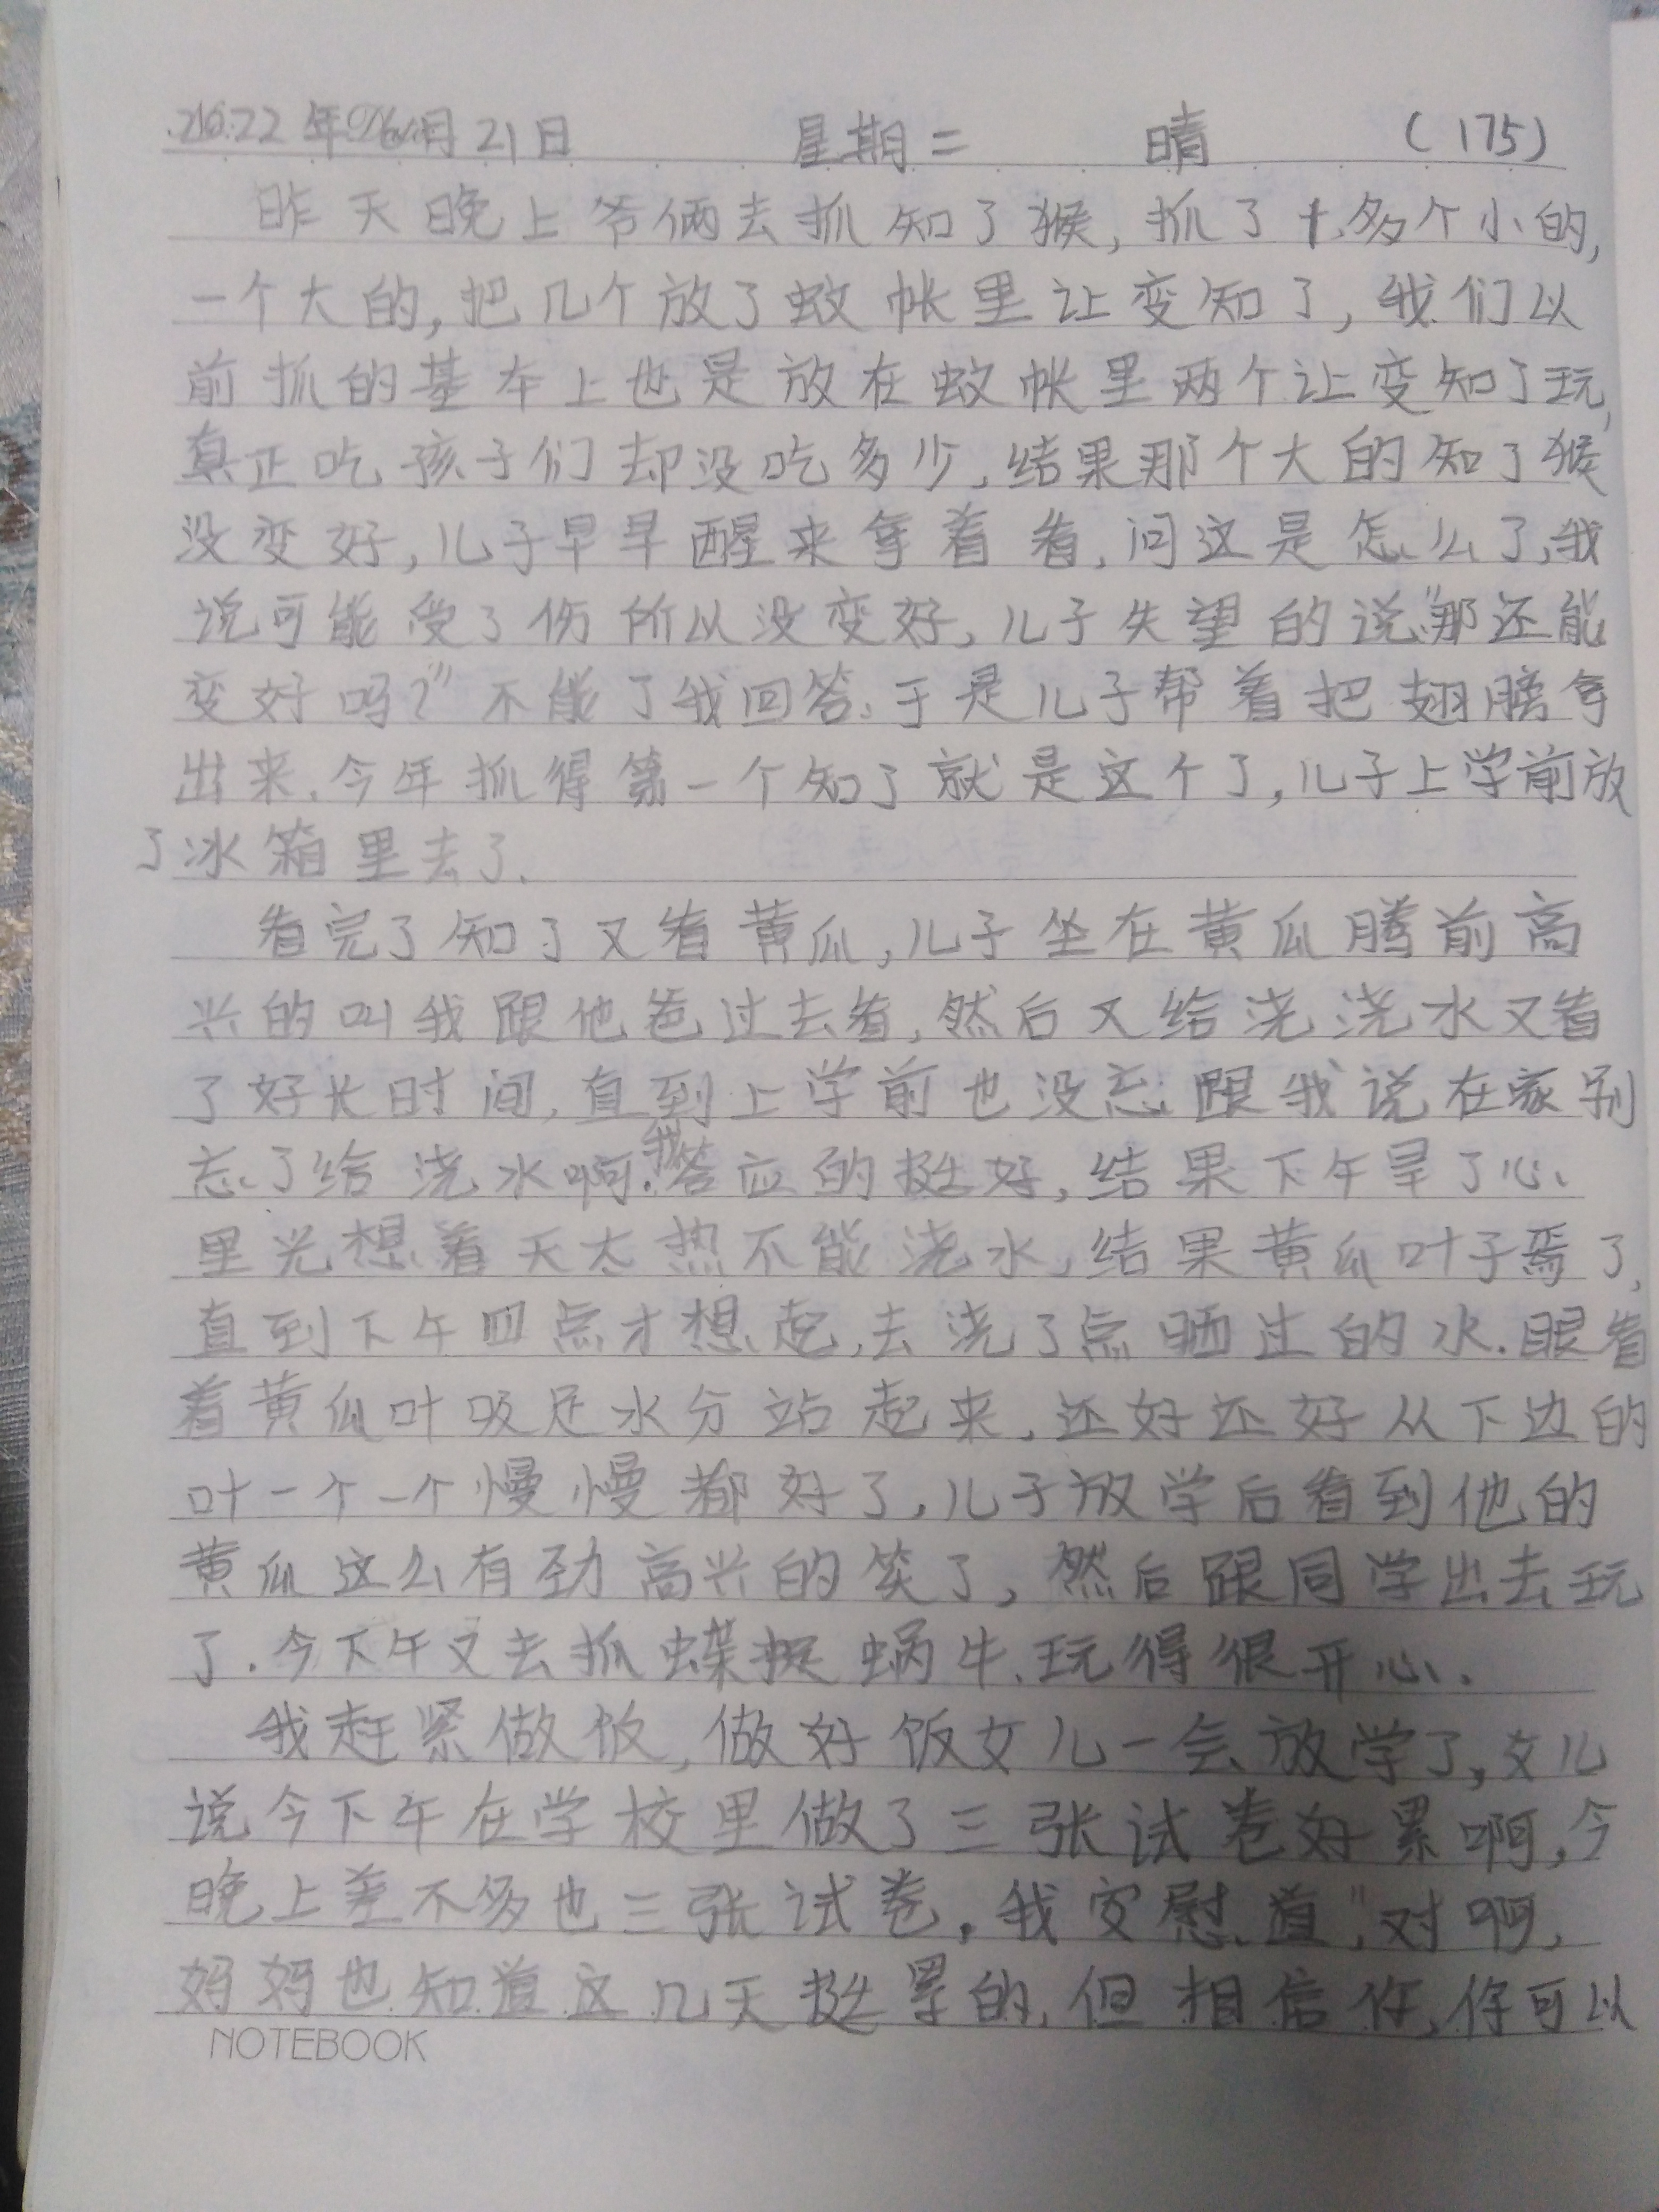 2022年06月21日 星期二 晴 (175)
昨天晚上爷俩去抓知了猴,抓了十多个小的,
一个大的,把几个放了蚊帐里让变知了,我们以
前抓的基本上也是放在蚊帐里两个让变知了玩,
真正吃孩子们却没吃多少,结果那个大的知了猴
没变好,儿子早早醒来拿着看,问这是怎么了,我
说可能受了伤所以没变好,儿子失望的说“那还能
变好吗?”不能了我回答.于是儿子帮着把翅膀拿
出来.今年抓得第一个知了就是这个了,儿子上学前放
了冰箱里去了.
看完了知了又看黄瓜,儿子坐在黄瓜腾前高
兴的叫我跟他爸过去看,然后又给浇浇水又看
了好长时间,直到上学前也没忘跟我说在家别
忘了给浇水啊.我答应的挺好,结果下午旱了心
里光想着天太热不能浇水,结果黄瓜叶子焉了,
直到下午四点才想起,去浇了点晒过的水.眼看
着黄瓜叶吸足水分站起来,还好还好从下边的
叶一个一个慢慢都好了,儿子放学后看到他的
黄瓜这么有劲高兴的笑了,然后跟同学出去玩
了.今下午又去抓蝶捉蜗牛.玩得很开心.
我赶紧做饭,做好饭女儿一会放学了,女儿
说今下午在学校里做了三张试卷好累啊,今
晚上差不多也三张试卷.我安慰道“对啊,
妈妈也知道这几天挺累的,但相信你,你可以
NOTEBOOK